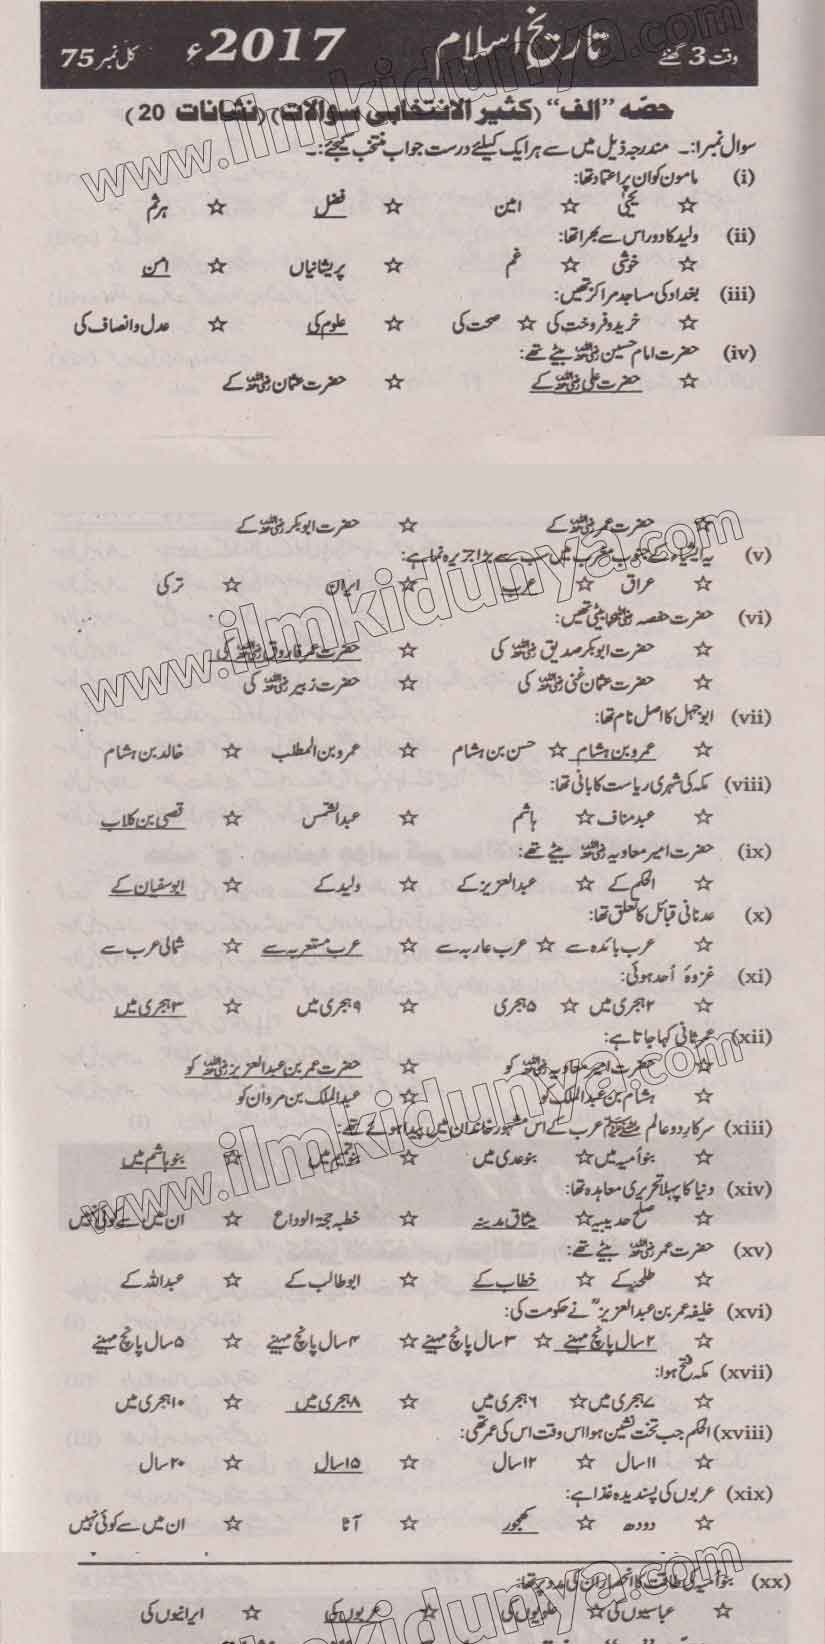 وقت 3 گھنٹے تاریخِ اسلام 2017ء کل نمبر 75
حصّہ ”الف“ (کثیر الانتخابی سوالات) (نشانات 20)
سوال نمبر۱:۔ مندرجہ ذیل میں سے ہر ایک کیلئے درست جواب منتخب کیجئے:۔
(i) مامون کو ان پر اعتماد تھا:
☆ یحیٰی ☆ امین ☆ فضل ☆ ہرثم
(ii) ولید کا دور اس سے بھرا تھا:
☆ خوشی ☆ غم ☆ پریشانیاں ☆ امن
(iii) بغداد کی مساجد مراکز تھیں:
☆ خرید و فروخت کی ☆ صحت کی ☆ علوم کی ☆ عدل و انصاف کی
(iv) حضرت امام حسین رضی اللہ عنہ بیٹے تھے:
☆ حضرت علی رضی اللہ عنہ کے ☆ حضرت عثمان رضی اللہ عنہ کے
☆ حضرت عمر رضی اللہ عنہ کے ☆ حضرت ابوبکر رضی اللہ عنہ کے
(v) یہ ایشیاء کے جنوب مغرب میں سب سے بڑا جزیرہ نما ہے:
☆ عراق ☆ عرب ☆ ایران ☆ ترکی
(vi) حضرت حفصہ رضی اللہ عنہا بیٹی تھیں:
☆ حضرت ابوبکر صدیق رضی اللہ عنہ کی ☆ حضرت عمر فاروق رضی اللہ عنہ کی
☆ حضرت عثمان غنی رضی اللہ عنہ کی ☆ حضرت زبیر رضی اللہ عنہ کی
(vii) ابوجہل کا اصل نام تھا:
☆ عمرو بن ہشام ☆ حسن بن ہشام ☆ عمرو بن المطلب ☆ خالد بن ہشام
(viii) مکہ کی شہری ریاست کا بانی تھا:
☆ عبد مناف ☆ ہاشم ☆ عبدالشمس ☆ قصی بن کلاب
(ix) حضرت امیر معاویہ رضی اللہ عنہ بیٹے تھے:
☆ الحکم کے ☆ عبدالعزیز کے ☆ ولید کے ☆ ابوسفیان کے
(x) عدنانی قبائل کا تعلق تھا:
☆ عرب بائدہ سے ☆ عرب عاربہ سے ☆ عرب مستعربہ سے ☆ شمالی عرب سے
(xi) غزوہ اُحد ہوئی:
☆ ۲ ہجری میں ☆ ۵ ہجری ☆ ۹ ہجری میں ☆ ۳ ہجری میں
(xii) عمر ثانی کہا جاتا ہے:
☆ حضرت امیر معاویہ رضی اللہ عنہ کو ☆ حضرت عمر بن عبدالعزیز رضی اللہ عنہ کو
☆ ہشام بن عبدالملک کو ☆ عبدالملک بن مروان کو
(xiii) سرکارِ دو عالم ﷺ عرب کے اس مشہور خاندان میں پیدا ہوئے تھے:
☆ بنو اُمیہ میں ☆ بنو عدی میں ☆ میں ☆ بنو ہاشم میں
(xiv) دنیا کا پہلا تحریری معاہدہ تھا:
☆ صلح حدیبیہ ☆ میثاق مدینہ ☆ خطبہ حجۃ الوداع ☆ ان میں سے کوئی نہیں
(xv) حضرت عمر رضی اللہ عنہ بیٹے تھے:
☆ طلحہ کے ☆ خطاب کے ☆ ابوطالب کے ☆ عبداللہ کے
(xvi) خلیفہ عمر بن عبدالعزیزؒ نے حکومت کی:
☆ ۲ سال پانچ مہینے ☆ ۳ سال پانچ مہینے ☆ ۴ سال پانچ مہینے ☆ ۵ سال پانچ مہینے
(xvii) مکہ فتح ہوا:
☆ ۷ ہجری میں ☆ ۶ ہجری میں ☆ ۸ ہجری میں ☆ ۱۰ ہجری میں
(xviii) الحکم جب تخت نشین ہوا اس وقت اس کی عمر تھی:
☆ ۱۱ سال ☆ ۱۲ سال ☆ ۱۵ سال ☆ ۲۰ سال
(xix) عربوں کی پسندیدہ غذا ہے:
☆ دودھ ☆ کھجور ☆ آٹا ☆ ان میں سے کوئی نہیں
(xx) بنو اُمیہ کی طاقت کا انحصار ان کی مدد پر تھا:
☆ عباسیوں کی ☆ علویوں کی ☆ عربوں کی ☆ ایرانیوں کی
www.ilmkidunya.com
www.ilmkidunya.com
www.ilmkidunya.com
www.ilmkidunya.com